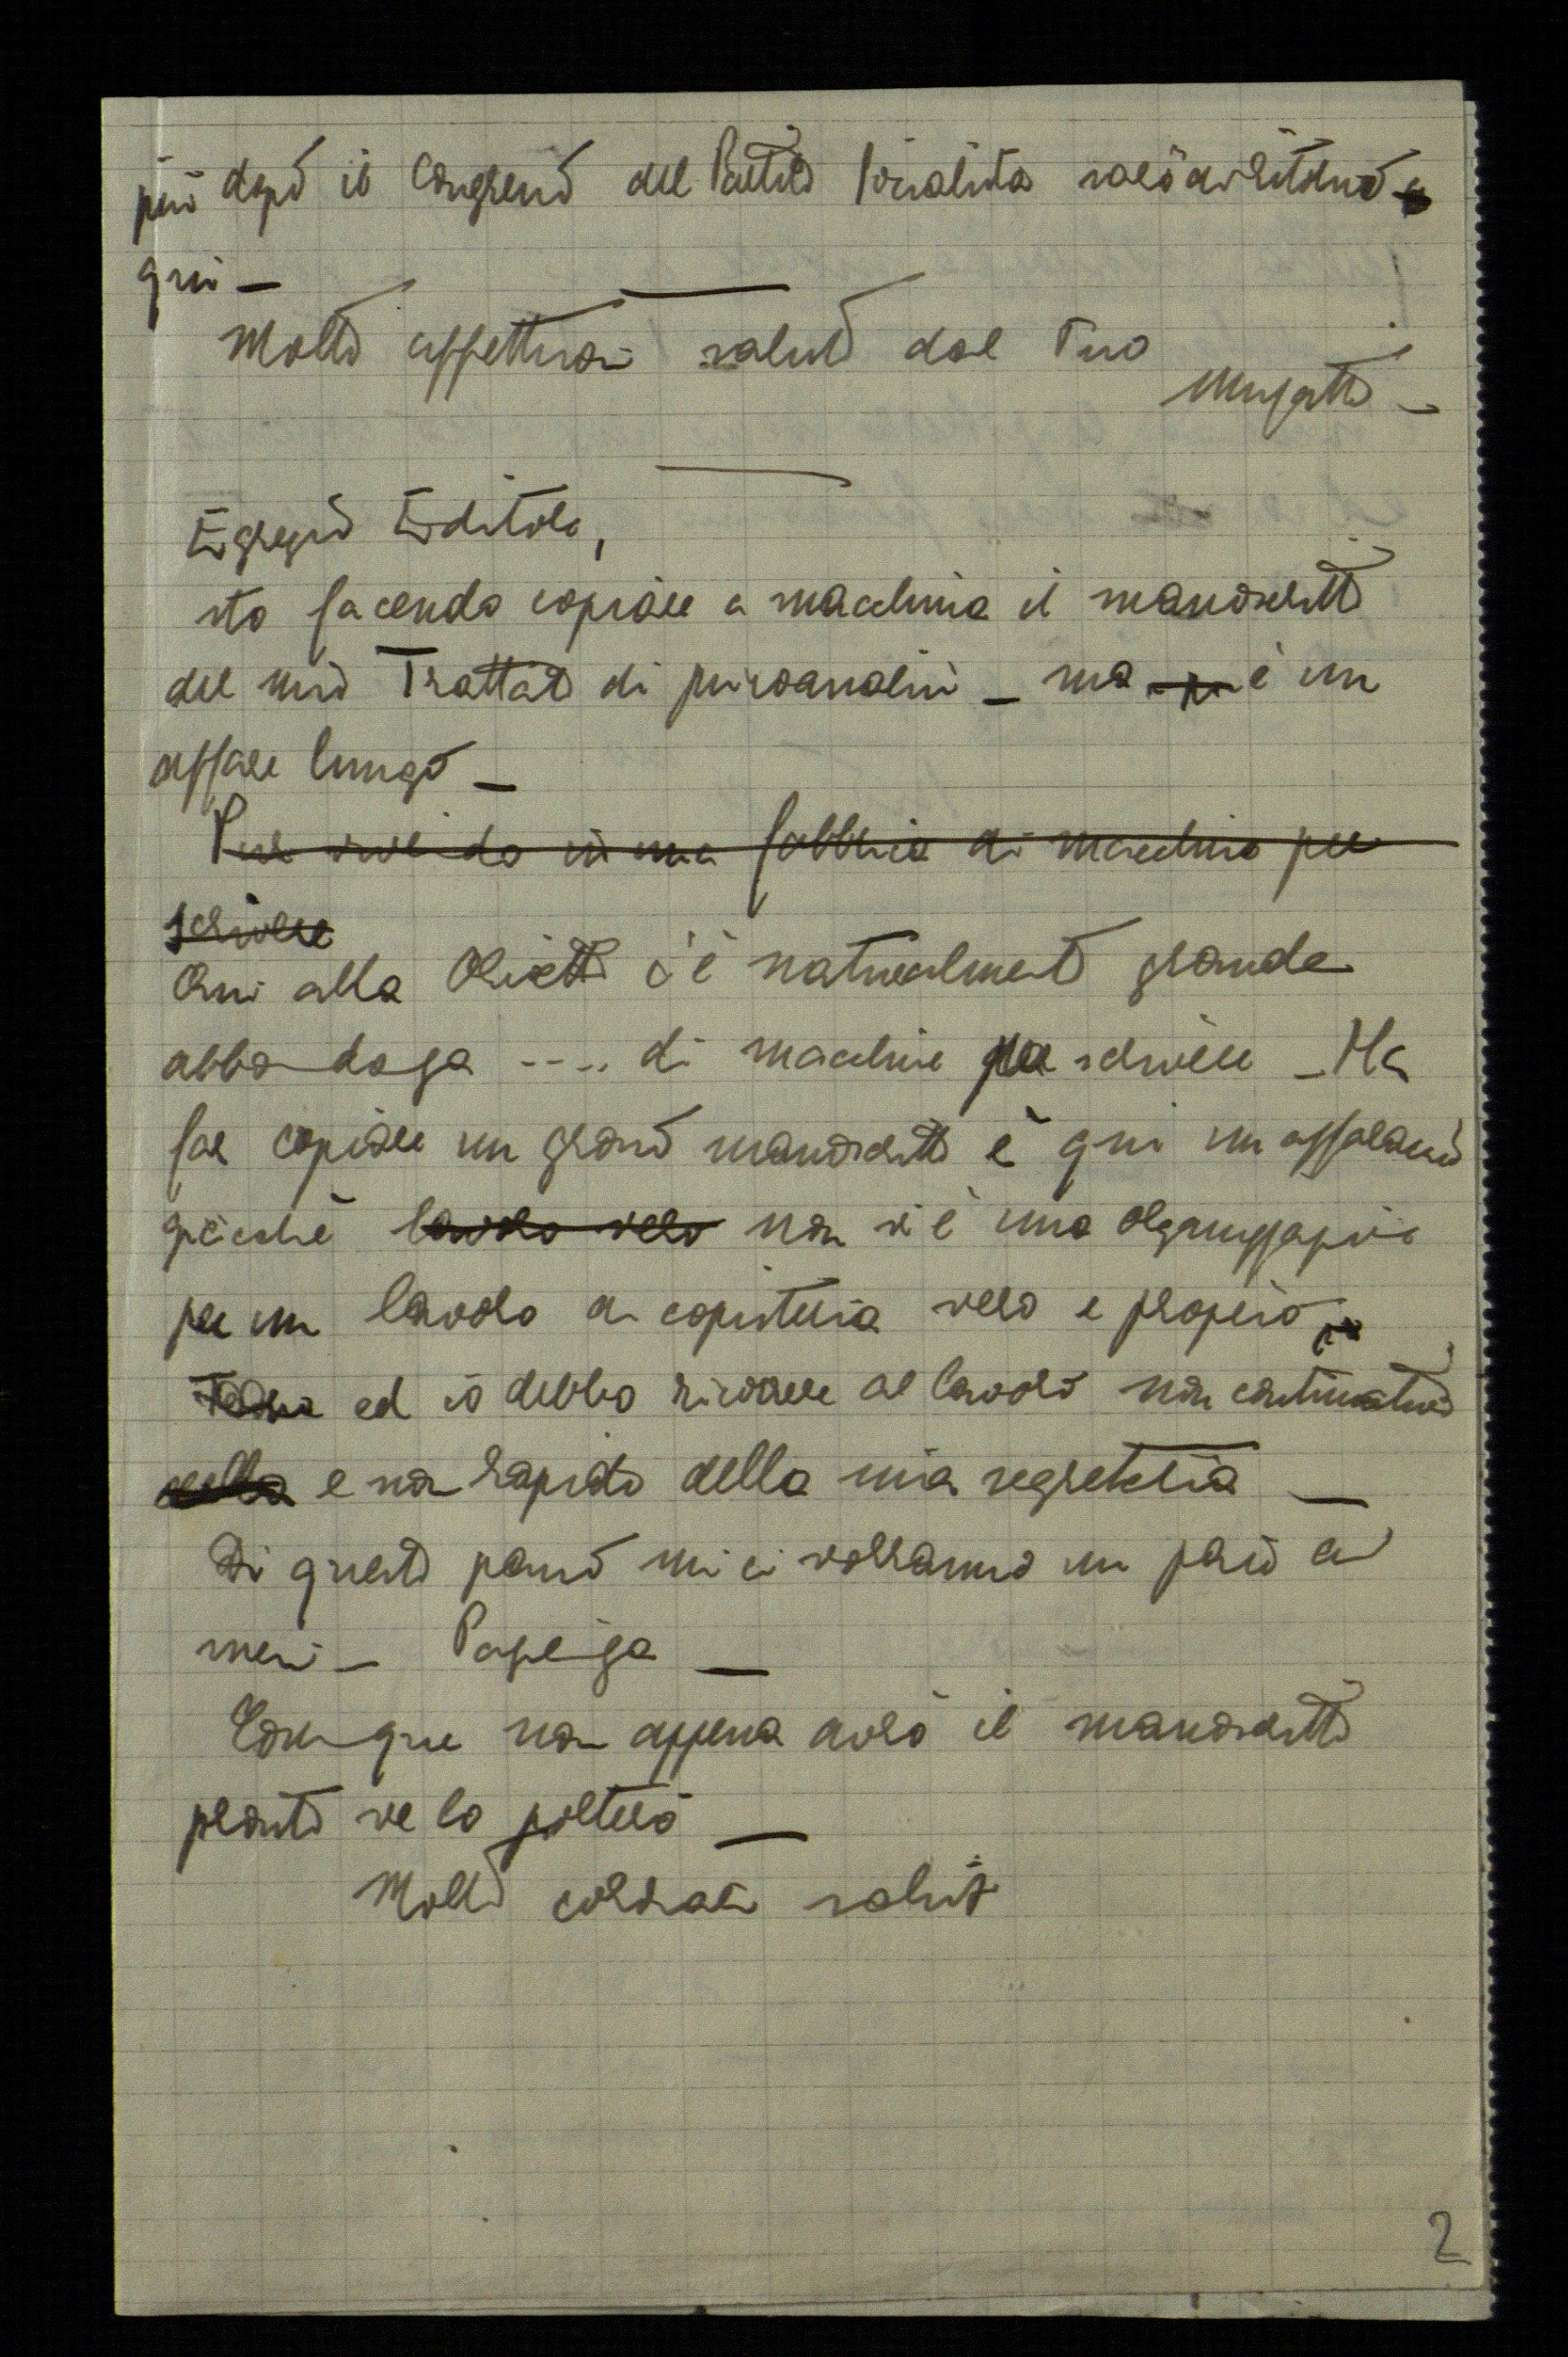 però dopo il Congresso del Partito Socialista sarò di ritorno
qui –
Molti affettuosi saluti dal Tuo
Musatti –
Egregio Editore,
sto facendo copiare a macchina il manoscritto
del mio Trattato di psicoanalisi – ma è un
affare lungo –
Pur vivendo in una fabbrica di macchine per
scrivere
Qui alla Olivetti c'è naturalmente grande
abbondanza .... di macchine per scrivere – Ma
far copiare un grosso manoscritto è qui un
giacché lavoro vero non vi è una organizzazione
per un lavoro di copisteria vero e proprio
ed io debbo ricorrere al lavoro non
e non rapido della mia segretaria –
Di questo passo mi ci vorranno un paio di
mesi – Pazienza –
Comunque non appena avrò il manoscritto
pronto ve lo porterò –
Molti cordiali saluti
2